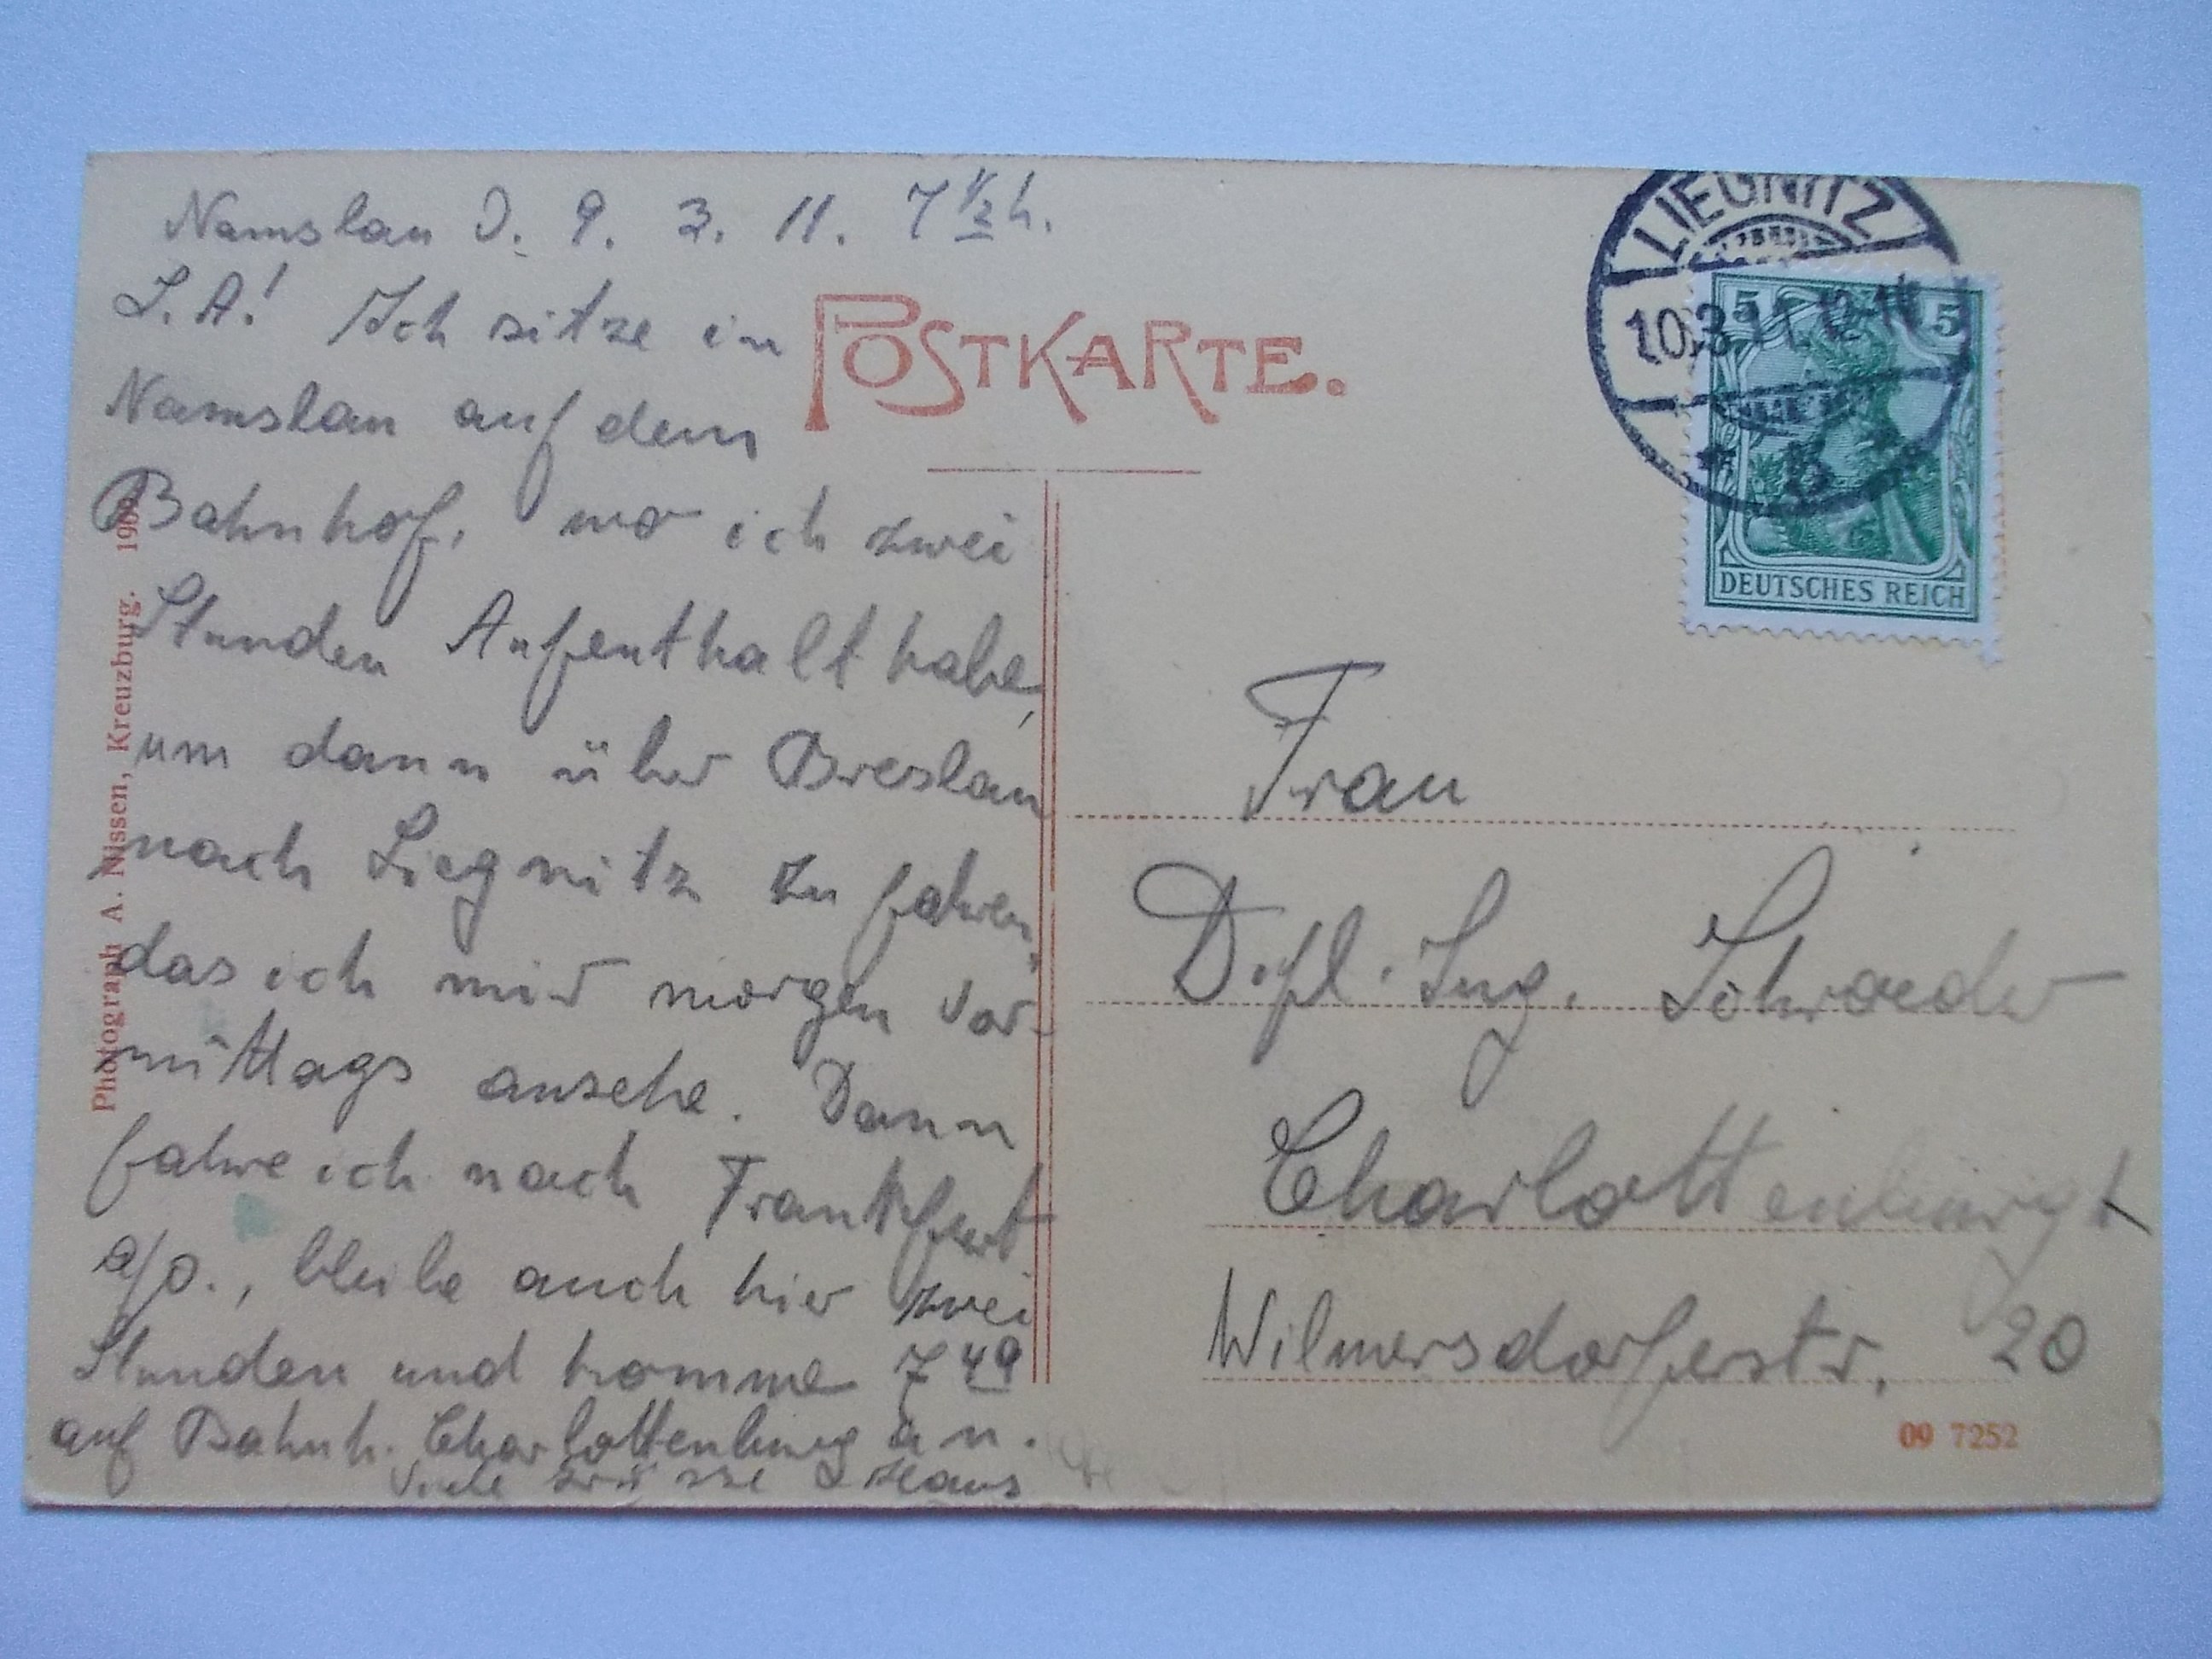 Namslau D. 9. 3. 11. 7 1/2 h.
L. A! Ich sitze in
Namslau auf dem
Bahnhof, wo ich zwei
Stunden Aufenthalt habe,
um dann über Breslau
nach Liegnitz zu fahren,
das ich mir morgen vor-
mittags ansehe. Dann
fahre ich nach Frankfurt
a/O., bleibe auch hier zwei
Stunden und komme 7 49
auf Bahnh. Charlottenburg an.
Viele Grüsse
POSTKARTE.
Photograph A. Nissen, Kreuzburg. 1909
LIEGNITZ
10.3.11.
DEUTSCHES REICH
5 5
Frau
Dipl. Ing. Schroeder
Charlottenburg
Wilmersdorferstr. 20
09 7252